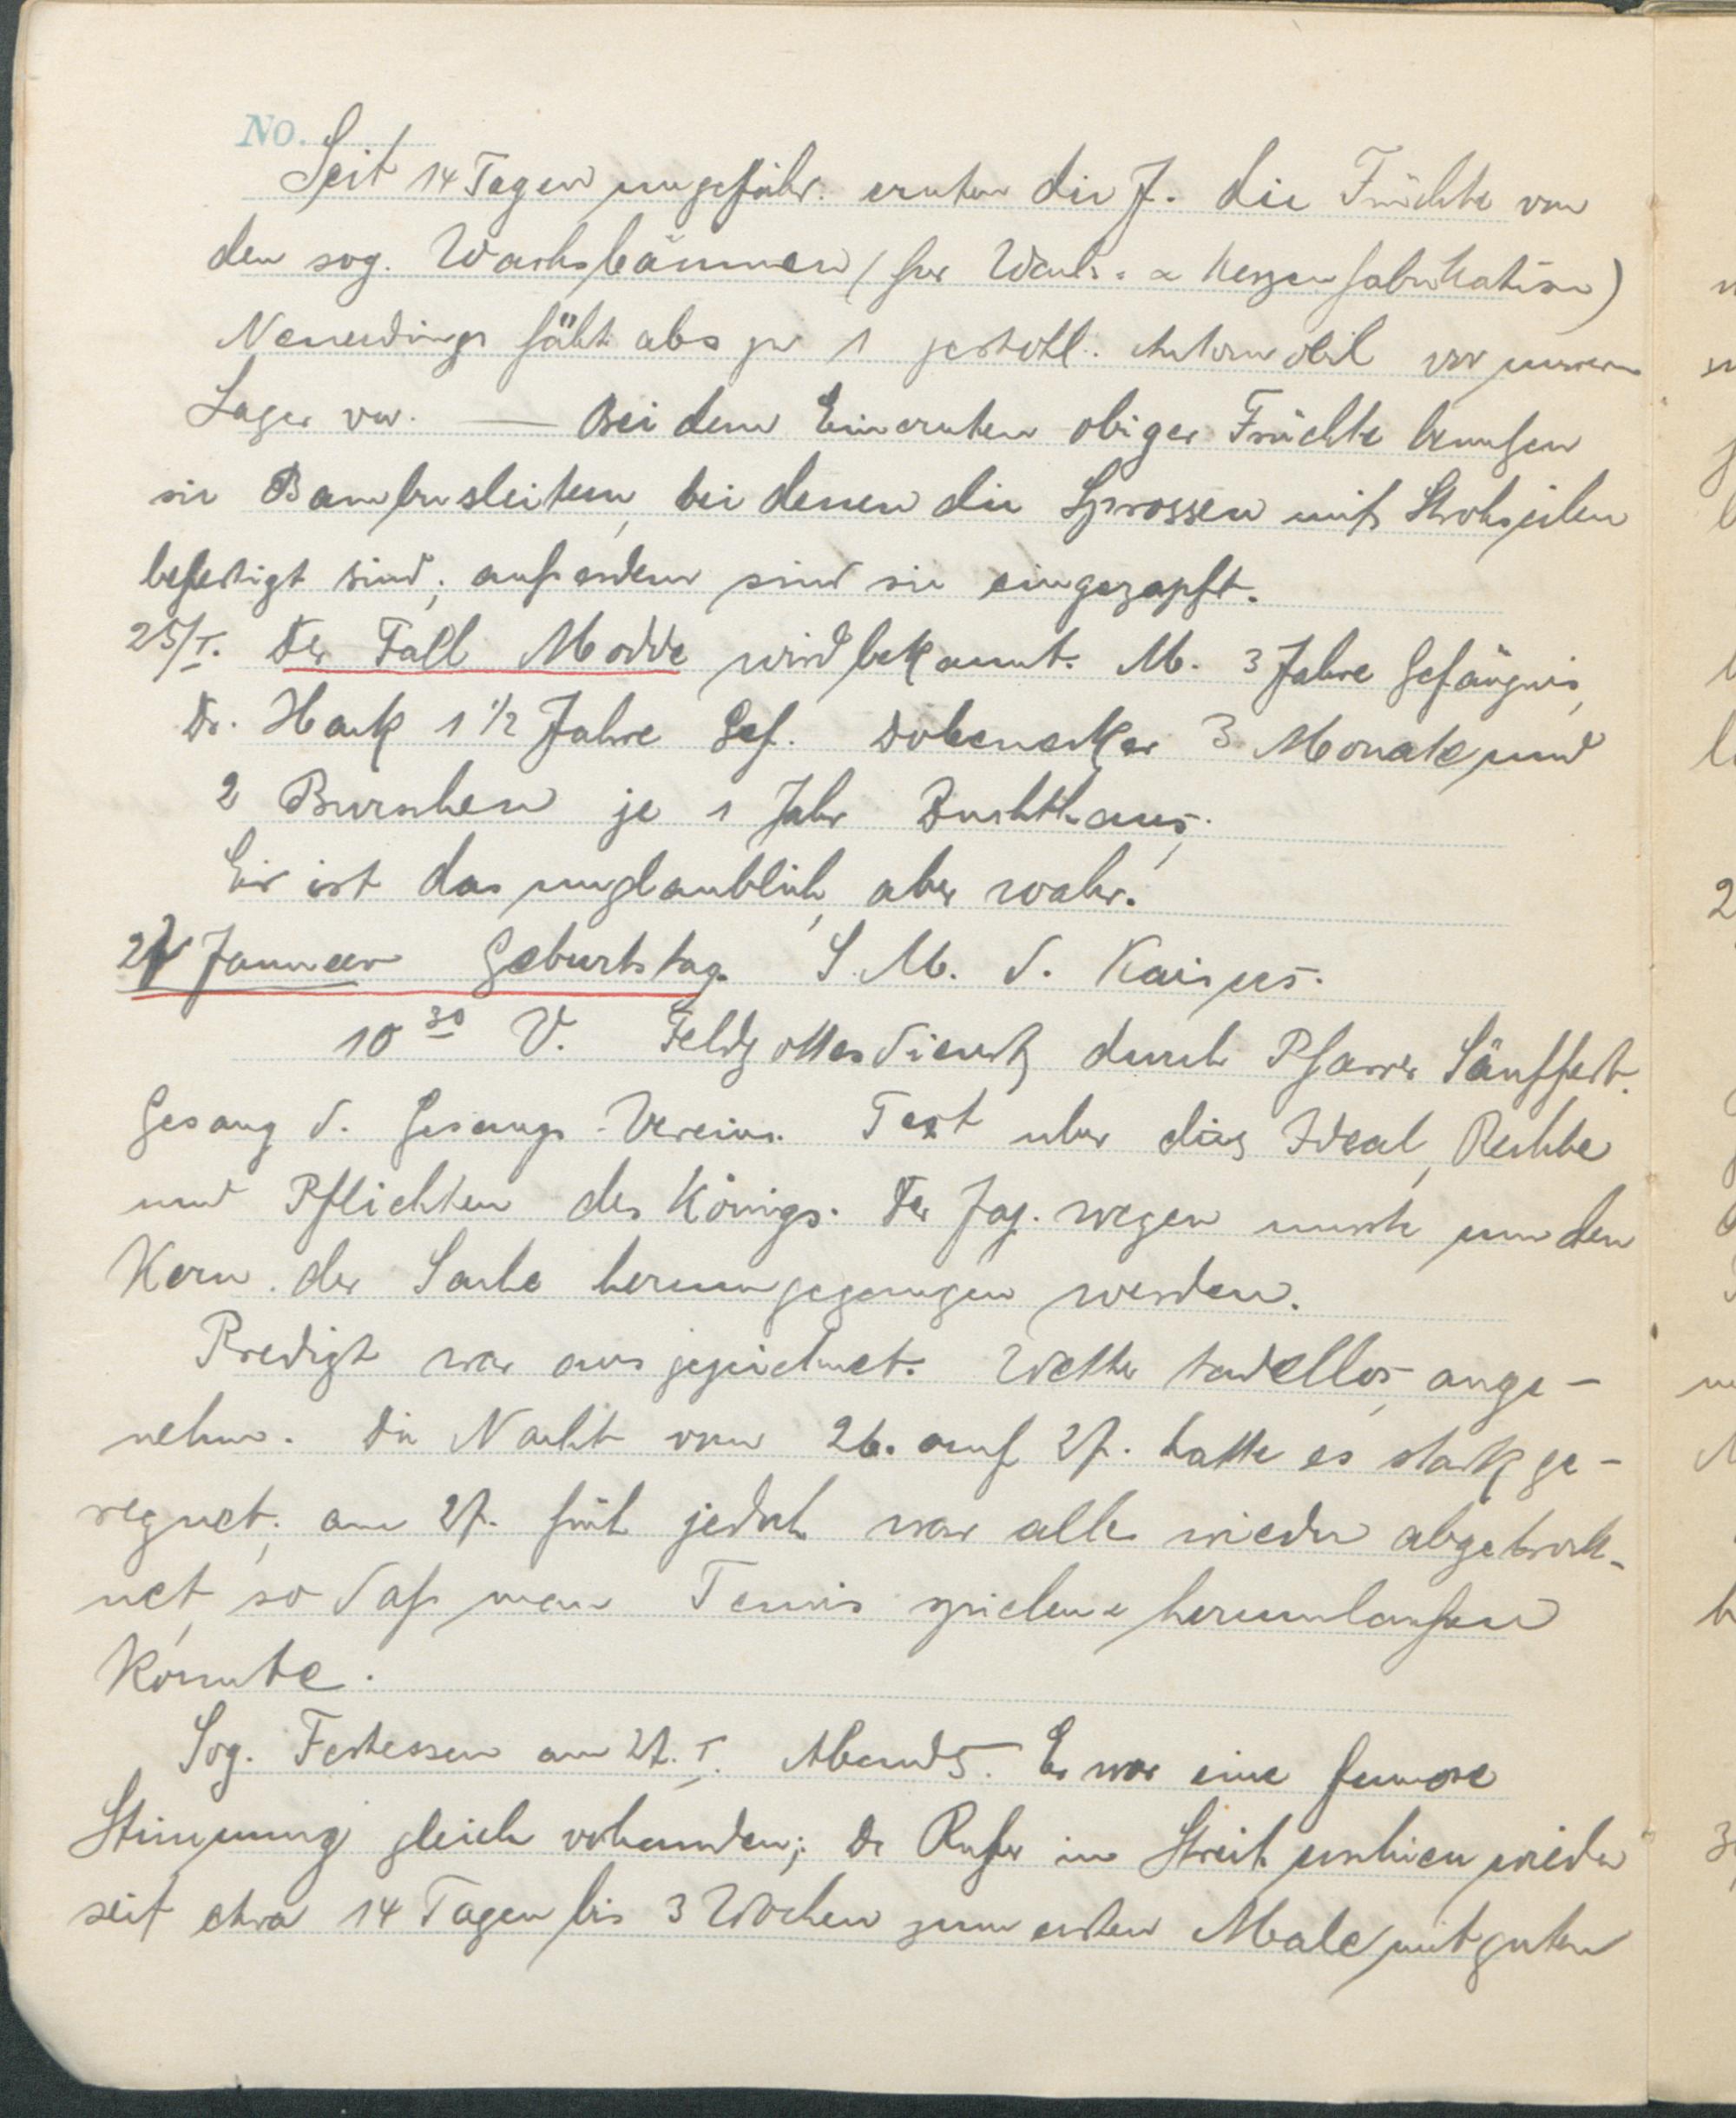 No.
Seit 14 Tagen ungefähr ernten die J. die Früchte von
den sog. Wachsbäumen (für Wachs- u Kerzenfabrikation)
Neuerdings fährt abs 1 Automobil vor unserm
Lager vor. — Bei dem Einernten obiger Früchte benutzen
sie Bambusleitern, bei denen die Sprossen mit Strohseilen
befestigt sind; ausserdem sind sie eingezapft.
25/I. Der Fall Modde wird bekannt. M. 3 Jahre Gefängnis,
Dr. Hack 1 1/2 Jahre Gef. Dobenecker 3 Monate und
2 Burschen je 1 Jahr Zuchthaus;
ist das unglaublich, aber wahr.
27 Januar Geburtstag S. M. d. Kaisers.
10 30 V. Feldgottesdienst durch Pfarrer Sänffert.
Gesang d. Gesangs-Vereins. Text über das Ideal, Rechte
und Pflichten des Königs. Der Jap. wegen musste um den
Kern der Sache herumgegangen werden.
Predigt war ausgezeichnet. Wetter tadellos, ange-
nehm. Die Nacht vom 26. auf 27. hatte es stark ge-
regnet; am 27. früh jedoch war alles wieder abgetrock-
net, so daß man Tennis spielen u herumlaufen
konnte.
Sog. Festessen am 27. I. Abends. Es war eine famose
Stimmung gleich vorhanden; der Rufer im Streit erschien wieder
seit etwa 14 Tagen bis 3 Wochen zum ersten Male mit guten